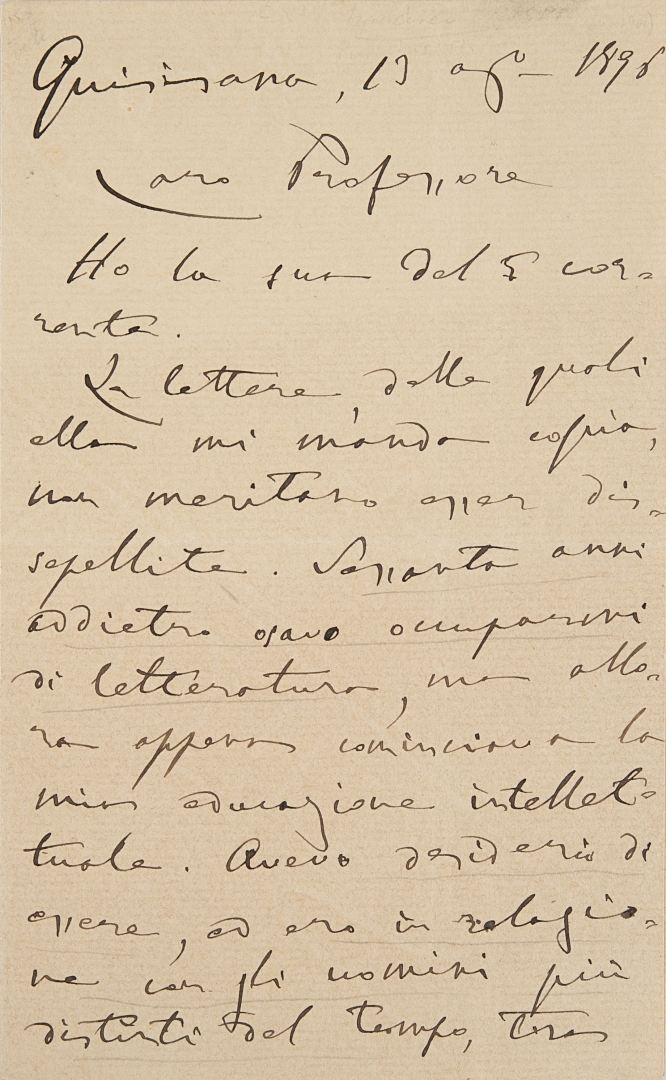 Quisisana, 13 ago 1898
Caro Professore
Ho la sua del 5 cor-
rente.
Le lettere, delle quali
ella mi manda copia,
non meritano esser dis-
sepellite. Sessanta anni
addietro osavo occuparmi
di letteratura, ma allo-
ra appena cominciava la
mia educazione intellet-
tuale. Avevo desiderio di
essere, ed ero in relazio-
ne con gli uomini più
distinti del tempo,